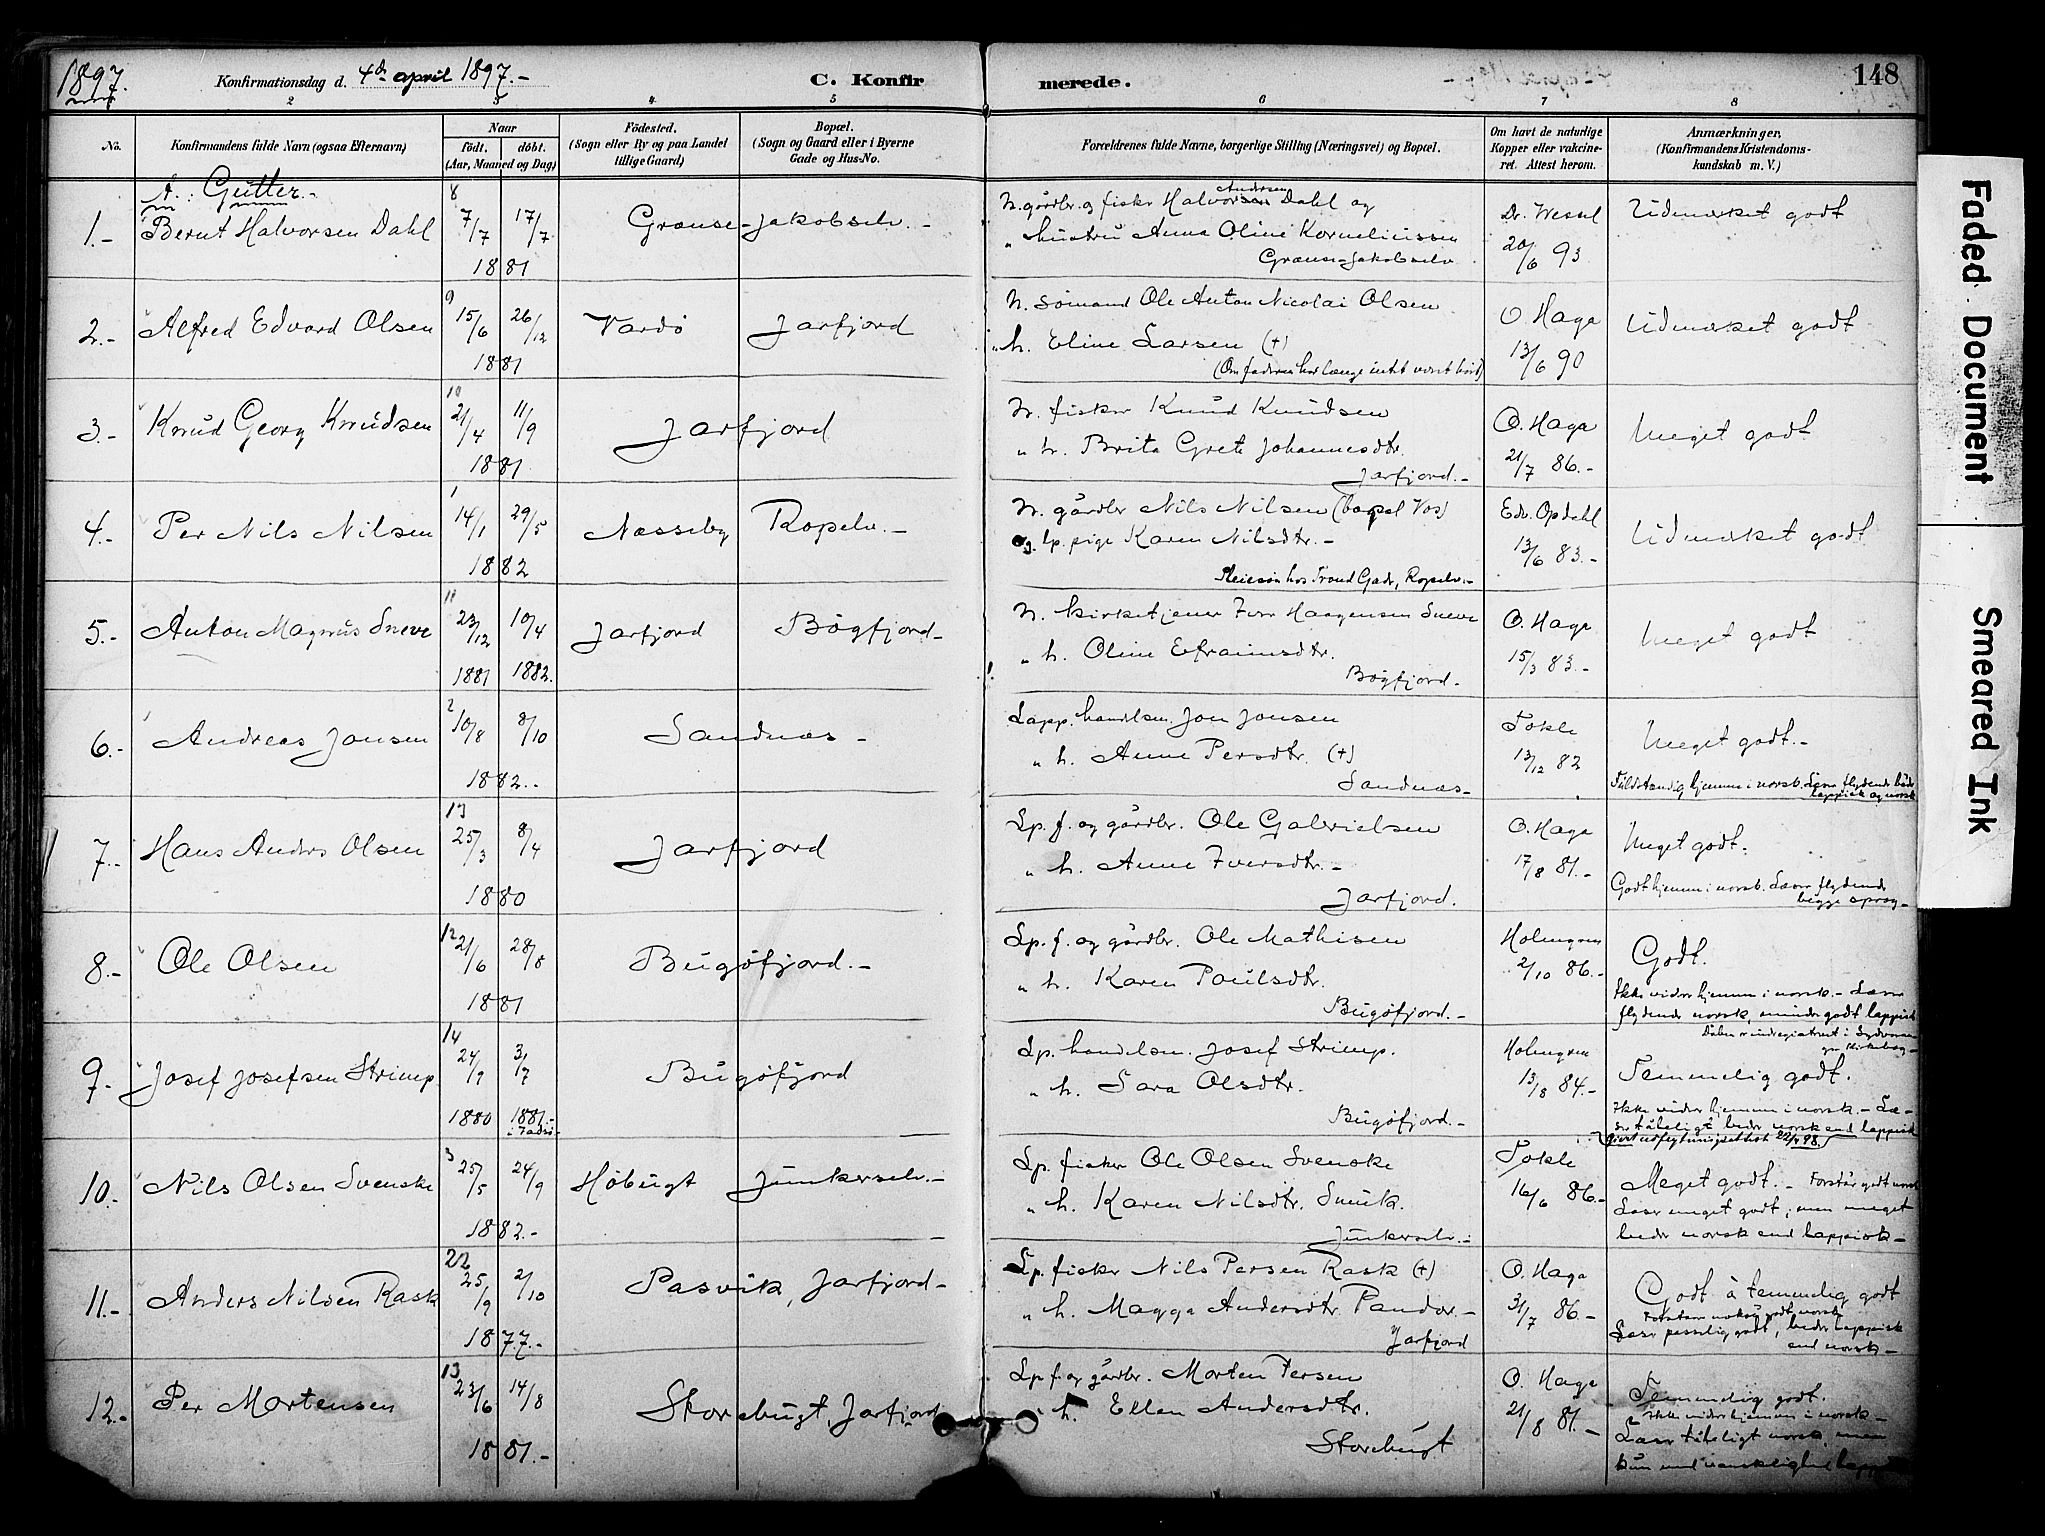 1897.
Konfirmationsdag d. 4de april 1897.-
C. Konfirmerede.
148
2 3 4 5 6 7 8
No.
Konfirmandens fulde Navn (ogsaa Efternavn)
Naar
født. døbt.
(Aar, Maaned og Dag)
Fødested.
(Sogn eller By og paa Landet
tillige Gaard)
Bopæl.
(Sogn og Gaard eller i Byerne
Gade og Hus-No.
Forældrenes fulde Navne, borgerlige Stilling (Næringsvei) og Bopæl.
Om havt de naturlige
Kopper eller vakcine-
ret. Attest herom.
Anmærkninger.
(Konfirmandens Kristendoms-
kundskab m. V.)
A.: Gutter.-
1.- Bernt Halvorsen Dahl
8
7/7 17/7
1881
Grænse-Jakobselv.-
N. gårdbr. og fisker Halvor Andersen Dahl og
" hustru Anna Oline Korneliussen
Grænse-Jakobselv
Dr. Wessel
20/6 93
Udmærket godt
2.- Alfred Edvard Olsen
9
15/6 26/12
1881
Vardø
Jarfjord
N. sømand Ole Anton Nicolai Olsen
" h. Eline Larsen (+)
(Om faderen har længe intet været hørt)
O Haga
13/6 90
Udmærket godt
3.- Knud Georg Knudsen
10
21/4 11/9
1881
Jarfjord
N. fisker Knud Knudsen
" h. Brita Grete Johannesdtr.
Jarfjord.-
O. Haga
21/7 86.-
Meget godt
4.- Per Nils Nilsen
1
14/1 29/5
1882
Næsseby
Ropelv.-
N. gårdbr Nils Nilsen (bopæl Vos)
og lp. pige Karen Nilsdtr.-
Pleiesøn hos Trond Gade, Ropelv.-
Edv. Opdahl
13/6 83.-
Udmærket godt
5.- Anton Magnus Sneve
11
23/12 10/4
1881 1882.
Jarfjord
Bøgfjord-
N. kirketjener Iver Haagensen Sneve
" h. Oline Efraimsdtr.
Bøgfjord.-
O. Haga
15/3 83.-
Meget godt
6.- Andreas Jonsen
2
10/8 8/10
1882.-
Sandnæs-
Lapp. handelsm. Jon Jonsen
" h. Anne Persdtr. (+)
Sandnæs-
Tokle
13/12 82
Meget godt.-
Fuldstændig hjemme i norsk. Læser flydende både
lappisk og norsk
7.- Hans Anders Olsen
13
25/3 8/4
1880
Jarfjord
Lp. f. og gårdbr. Ole Gabrielsen
" h. Anne Iversdtr.-
Jarfjord.
O. Haga
17/8 81.-
Meget godt.
Godt hjemme i norsk. Læser flydende
begge sprog-
8.- Ole Olsen
12
21/6 28/8
1881
Bugøfjord.-
Lp. f. og gårdbr. Ole Mathisen
" h. Karen Poulsdtr.
Bugøfjord.-
Holmgren
2/10 86.-
Godt.
Ikke videre hjemme i norsk.- Læser
flydende norsk, mindre godt lappisk
9.- Josef Josefsen Strimp
14
24/9 3/7
1880 1881.-
i Vadsø-
Bugøfjord
Lp. handelsm. Josef Strimp.
" h. Sara Olsdtr.
Bugøfjord.-
Holmgren
13/8 84.-
Dåben er indregistreret i Sydvaran-
ger kirkebog-
Temmelig godt.
Ikke videre hjemme i norsk.- Læ-
ser tåleligt bedre norsk end lappisk
10.- Nils Olsen Svenske
3
25/5 24/9
1882.-
Høbugt
Junkerelv.-
Lp. fisker Ole Olsen Svenske
" h. Karen Nilsdtr. Snuk.
Junkerelv.-
Tokle
16/6 86.-
Meget godt.- Forstår godt norsk
Læser meget godt, men meget
bedre norsk end lappisk-
11.- Anders Nilsen Rask
22
25/9 2/10
1877.-
Pasvik, Jarfjord-
Lp. fisker Nils Persen Rask (+)
" h. Magga Andersdtr. Pandor.-
Jarfjord
O. Haga
31/7 86.-
Godt à temmelig godt
Forstaar nokså godt norsk
Læser passelig godt, bedre lappisk
end norsk-
12.- Per Mortensen
13
23/6 14/8
1881.-
Storebugt, Jarfjord
Lp. f. og gårdbr. Morten Persen
" h. Ellen Andersdtr.
Storebugt
O. Haga
21/8 81.-
Temmelig godt.
Ikke videre hjemme i norsk-
Læser tåleligt norsk, men
kun med vanskelighed lappisk
Faded Document
Smeared Ink